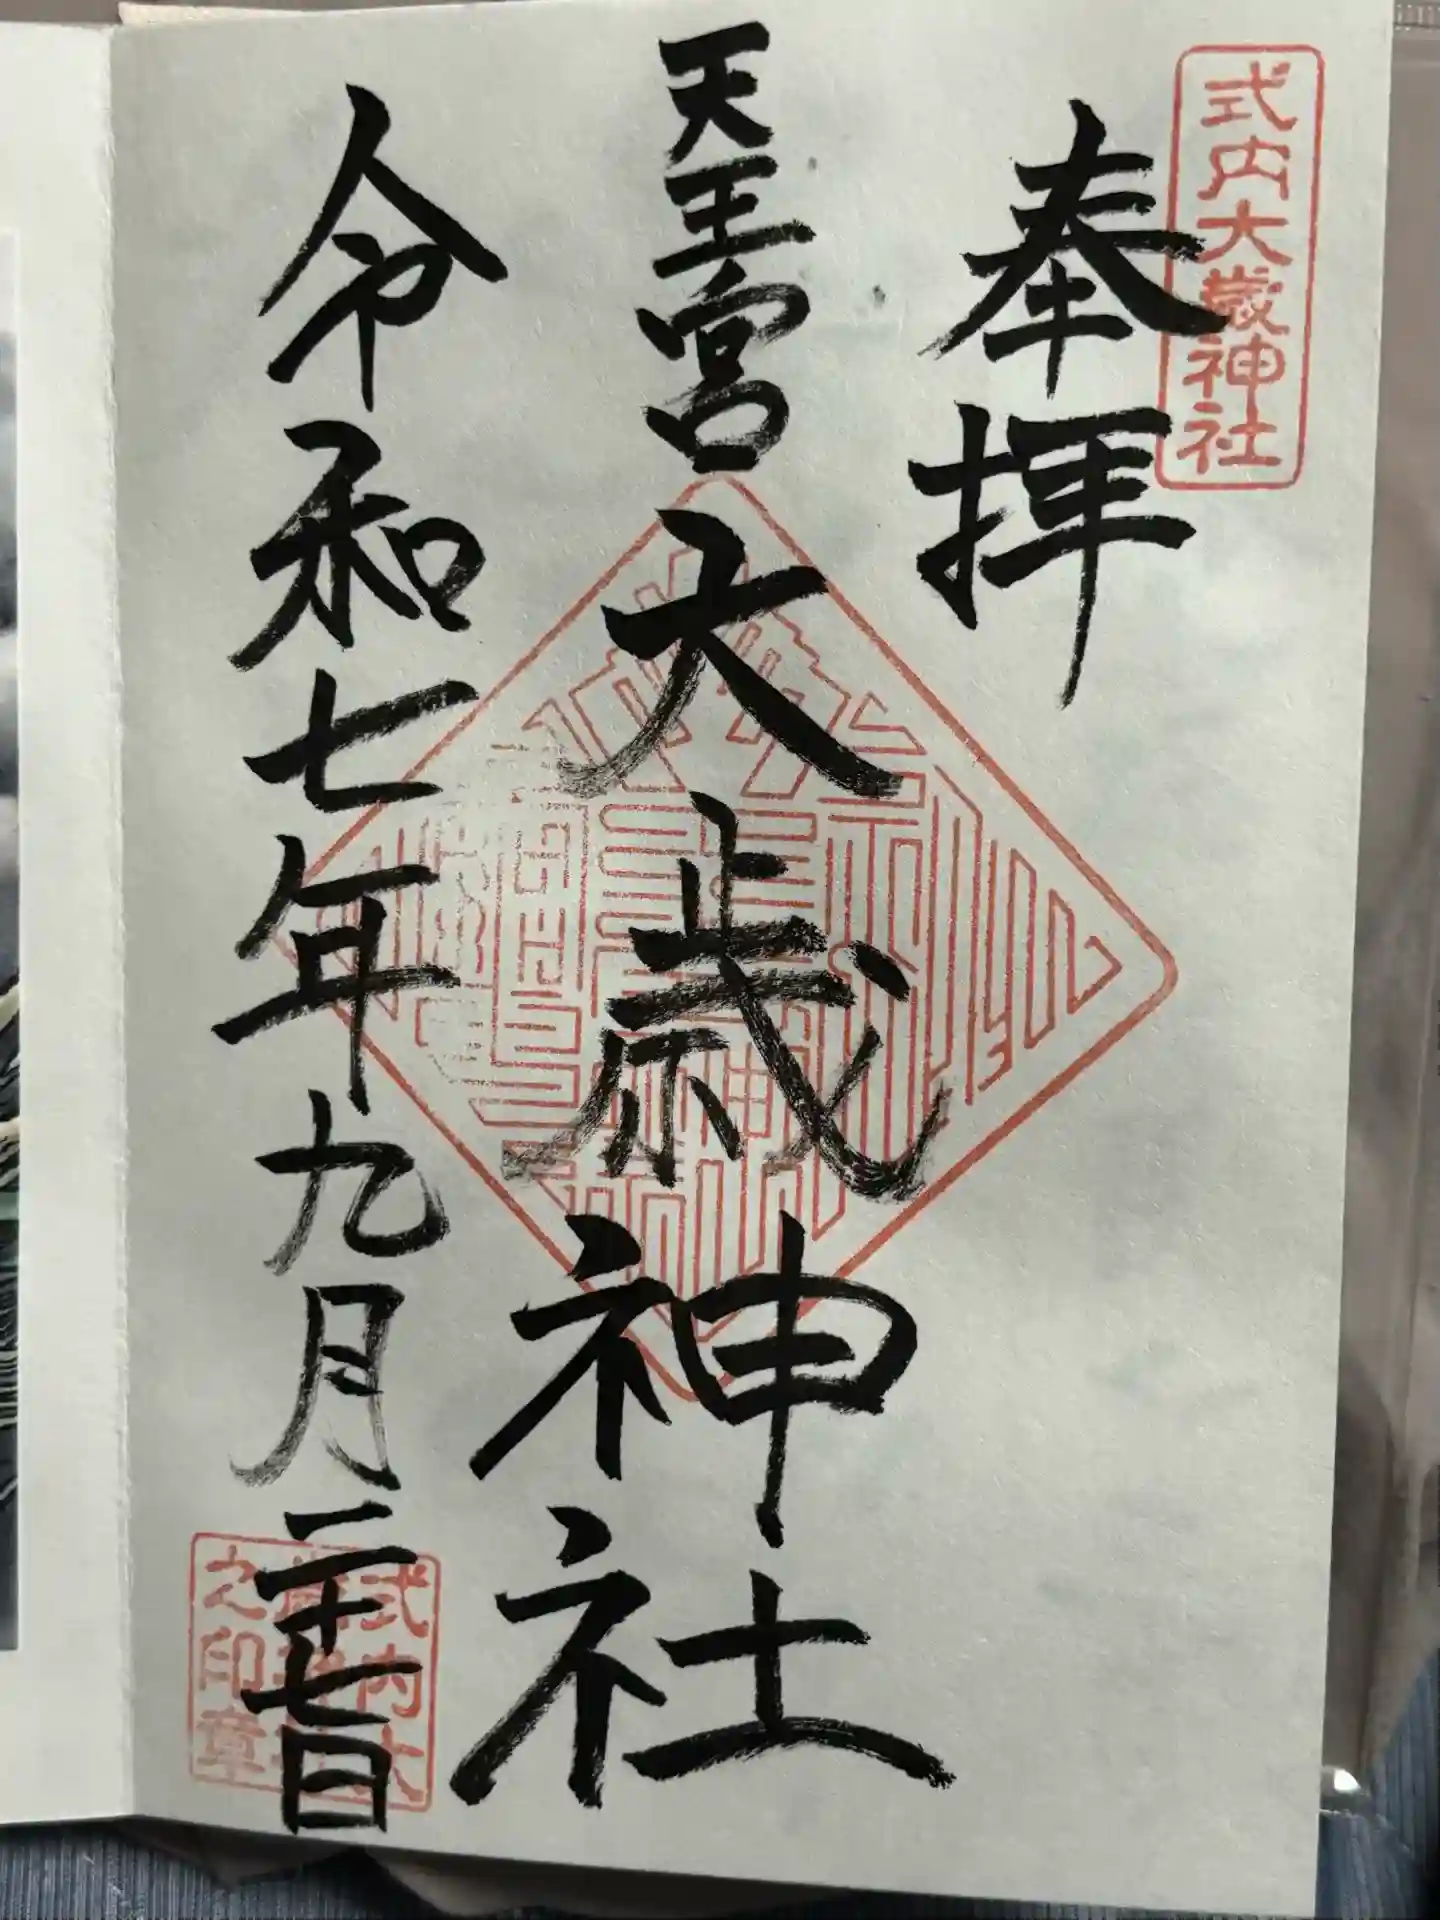 式内大歳神社
奉拝
天王宮大歳神社
令和七年九月二十七日
式内大
之印章